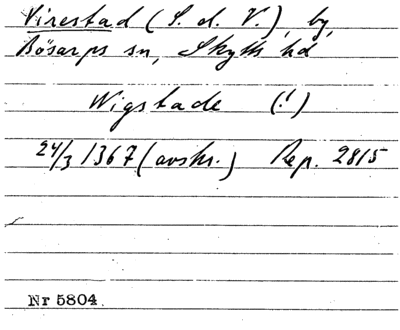 Virestad (S. d. V.), by,
Bösarps sn, Skytts hd
Wigstade (!)
24/3 1367 (avskr.) Rep. 2815
Nr 5804